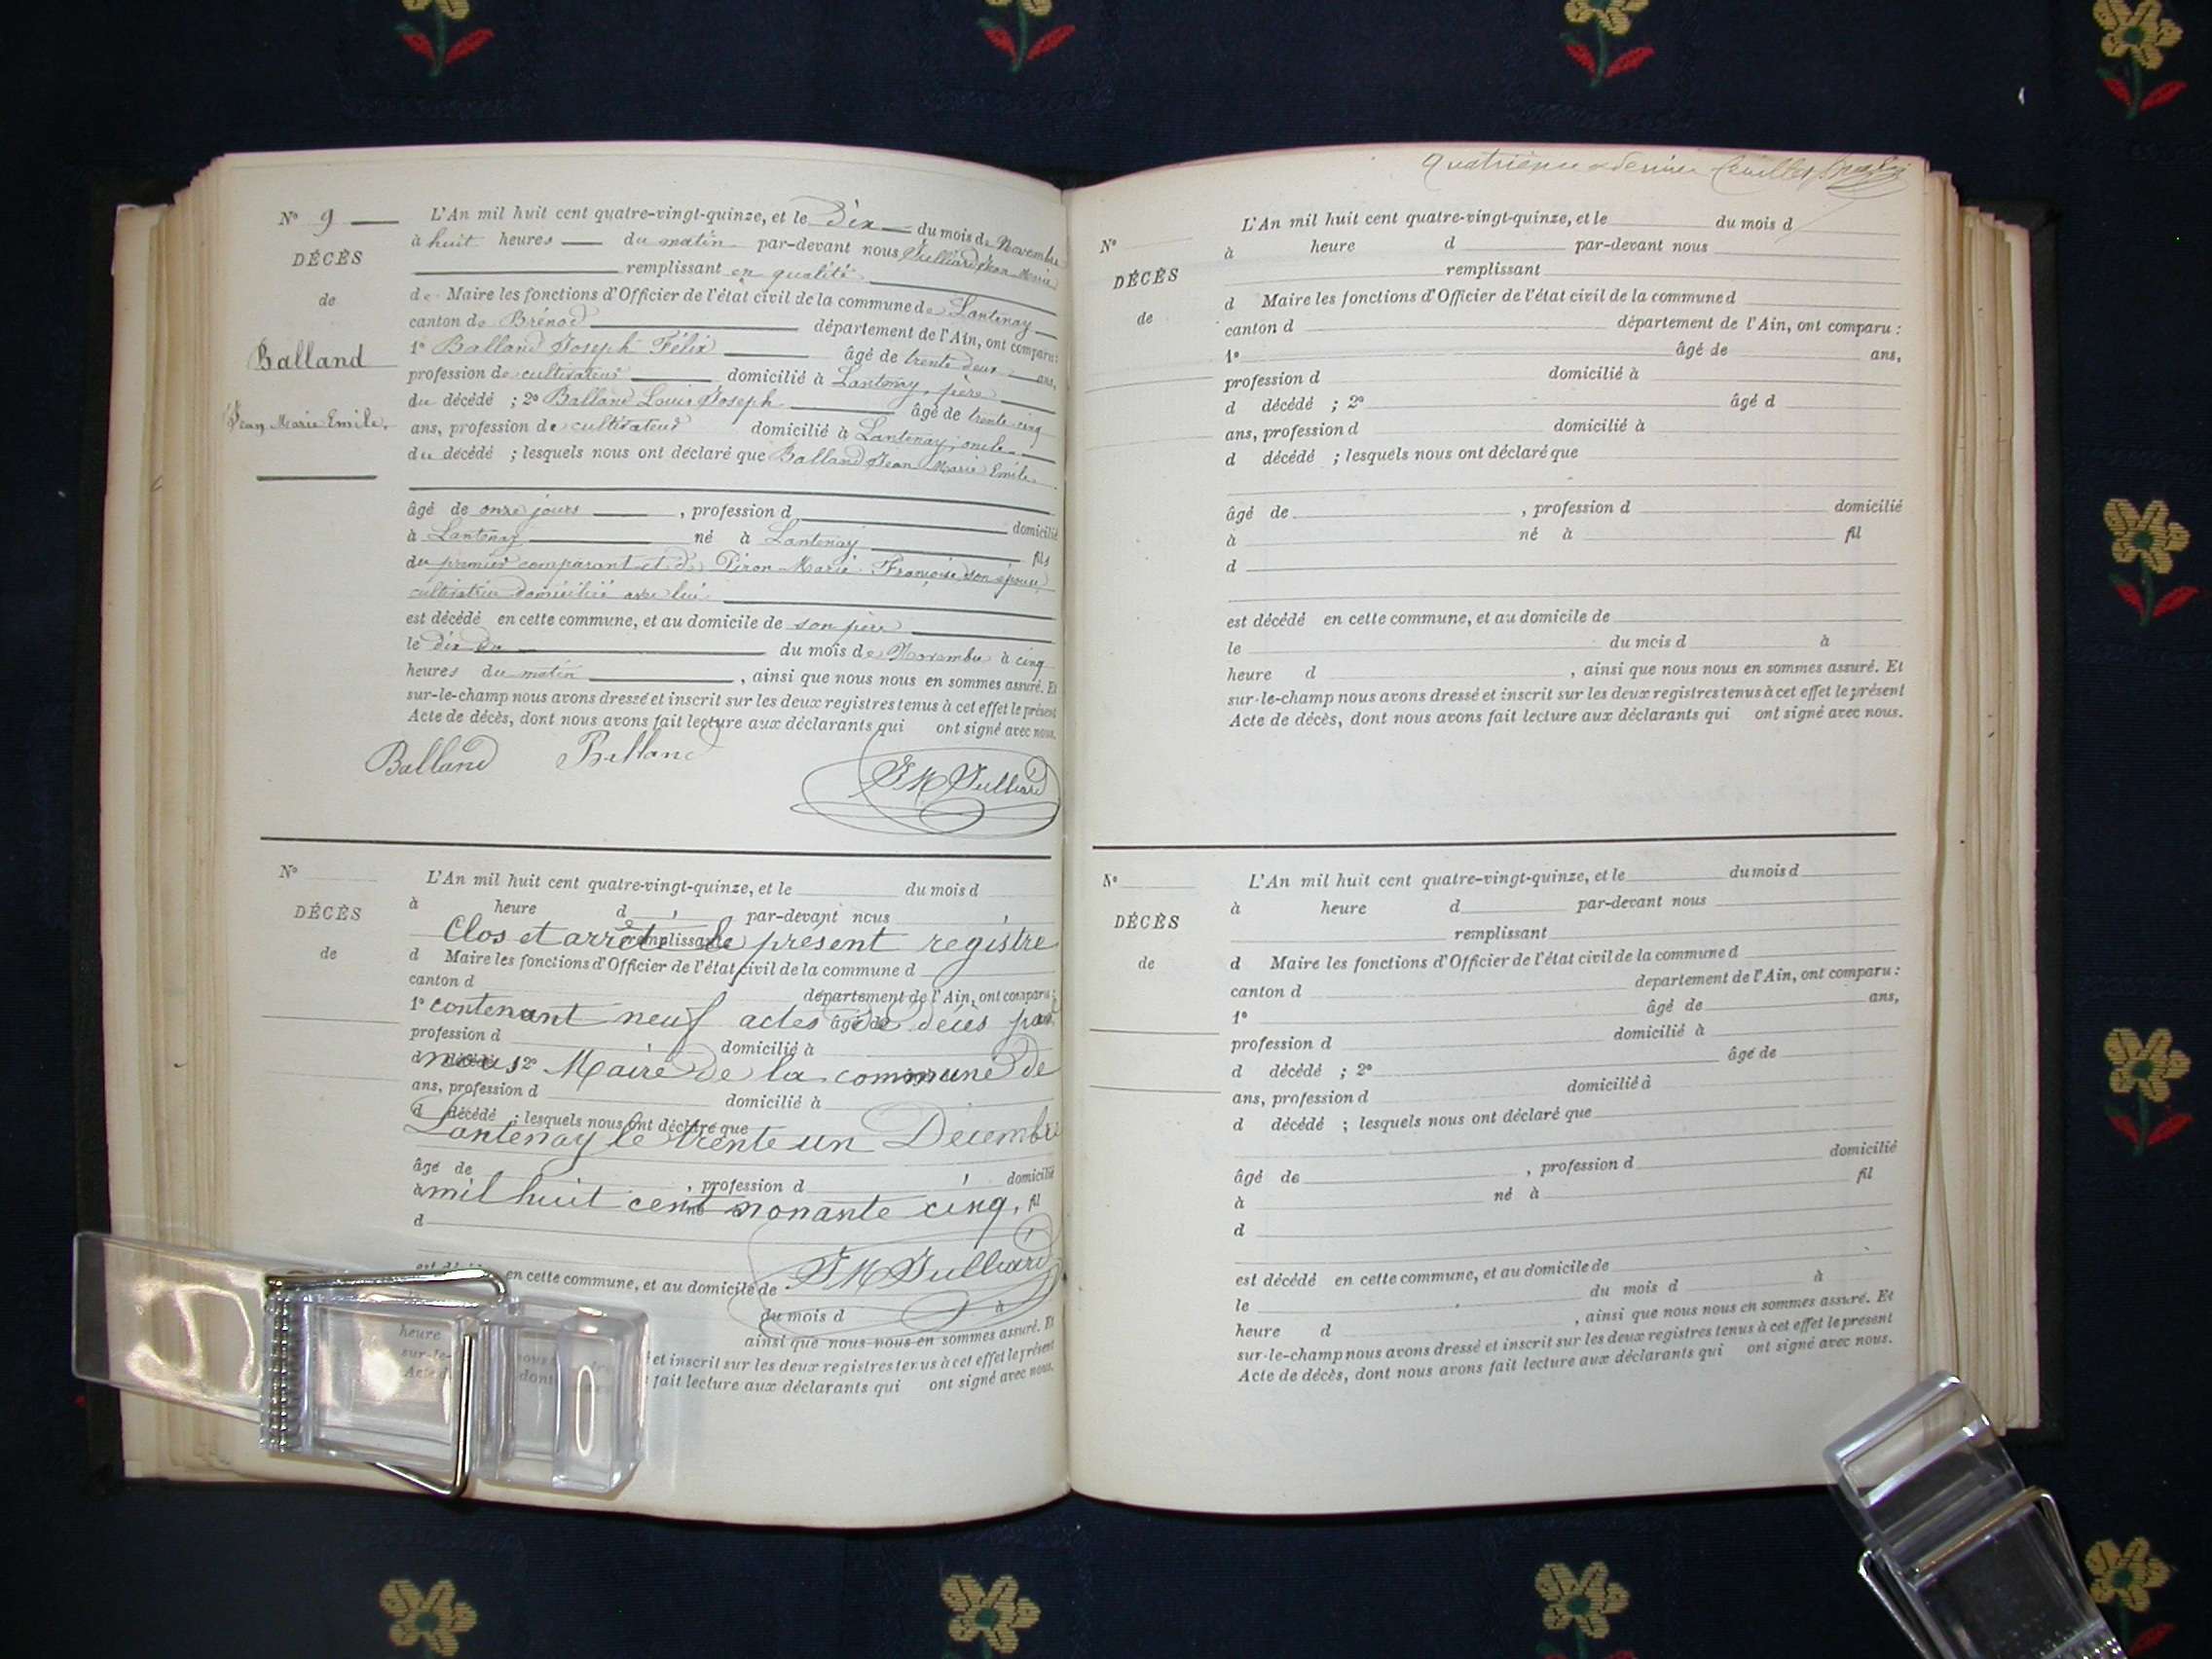 N° 9
DÉCÈS
de
Balland
Jean Marie Emile.
L'An mil huit cent quatre-vingt-quinze, et le Dix du mois de Novembre
à huit heures du matin par-devant nous Julliard Jean Marie
remplissant en qualité
de Maire les fonctions d'Officier de l'état civil de la commune de Lantenay
canton de Brénod département de l'Ain, ont comparu:
1° Balland Joseph Félix âgé de trente deux ans,
profession de cultivateur domicilié à Lantenay, père
du décédé ; 2° Balland Louis Joseph âgé de trente cinq
ans, profession de cultivateur domicilié à Lantenay, oncle
du décédé ; lesquels nous ont déclaré que Balland Jean Marie Emile
âgé de onze jours , profession d domicilié
à Lantenay né à Lantenay fils
du premier comparant et de Piron Marie Françoise son épouse,
cultivatrice domiciliée avec lui
est décédé en cette commune, et au domicile de son père
le dix du du mois de Novembre à cinq
heures du matin , ainsi que nous nous en sommes assuré. Et
sur-le-champ nous avons dressé et inscrit sur les deux registres tenus à cet effet le présent
Acte de décès, dont nous avons fait lecture aux déclarants qui ont signé avec nous.
Balland Balland
JM Julliard
N°
DÉCÈS
de
L'An mil huit cent quatre-vingt-quinze, et le du mois d
à heure d par-devant nous
remplissant
Clos et arrêté le présent registre
d Maire les fonctions d'Officier de l'état civil de la commune d
canton d département de l'Ain, ont comparu:
1° âgé de
contenant neuf actes de décès par
profession d domicilié à
d 2°
nous Maire de la commune de
ans, profession d domicilié à
d décédé ; lesquels nous ont déclaré que
Lantenay le trente un Décembre
âgé de , profession d domicilié
à né à fil
mil huit cent nonante cinq.
d
JM Julliard
en cette commune, et au domicile de
du mois d à
heure ainsi que nous nous en sommes assuré. Et
sur-le- et inscrit sur les deux registres tenus à cet effet le présent
Acte d dont fait lecture aux déclarants qui ont signé avec nous.
Quatrième et dernier feuillet
N°
DÉCÈS
de
L'An mil huit cent quatre-vingt-quinze, et le du mois d
à heure d par-devant nous
remplissant
d Maire les fonctions d'Officier de l'état civil de la commune d
canton d département de l'Ain, ont comparu :
1° âgé de ans,
profession d domicilié à
d décédé ; 2° âgé d
ans, profession d domicilié à
d décédé ; lesquels nous ont déclaré que
âgé de , profession d domicilié
à né à fil
d
est décédé en cette commune, et au domicile de
le du mois d à
heure d , ainsi que nous nous en sommes assuré. Et
sur-le-champ nous avons dressé et inscrit sur les deux registres tenus à cet effet le présent
Acte de décès, dont nous avons fait lecture aux déclarants qui ont signé avec nous.
N°
DÉCÈS
de
L'An mil huit cent quatre-vingt-quinze, et le du mois d
à heure d par-devant nous
remplissant
d Maire les fonctions d'Officier de l'état civil de la commune d
canton d département de l'Ain, ont comparu :
1° âgé de ans,
profession d domicilié à
d décédé ; 2° âgé de
ans, profession d domicilié à
d décédé ; lesquels nous ont déclaré que
âgé de , profession d domicilié
à né à fil
d
est décédé en cette commune, et au domicile de
le du mois d à
heure d , ainsi que nous nous en sommes assuré. Et
sur-le-champ nous avons dressé et inscrit sur les deux registres tenus à cet effet le présent
Acte de décès, dont nous avons fait lecture aux déclarants qui ont signé avec nous.